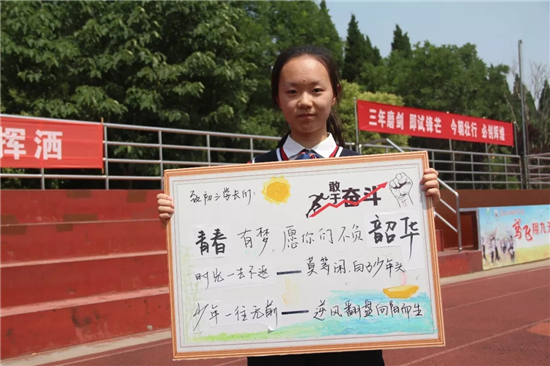 挥洒
三年磨剑 即试锋芒 今朝壮行 必创辉煌
学长们:
敢于奋斗
青春有梦,愿你们不负韶华
时光一去不返——莫等闲,白了少年头
少年一往无前——逆风翻盘向阳而生